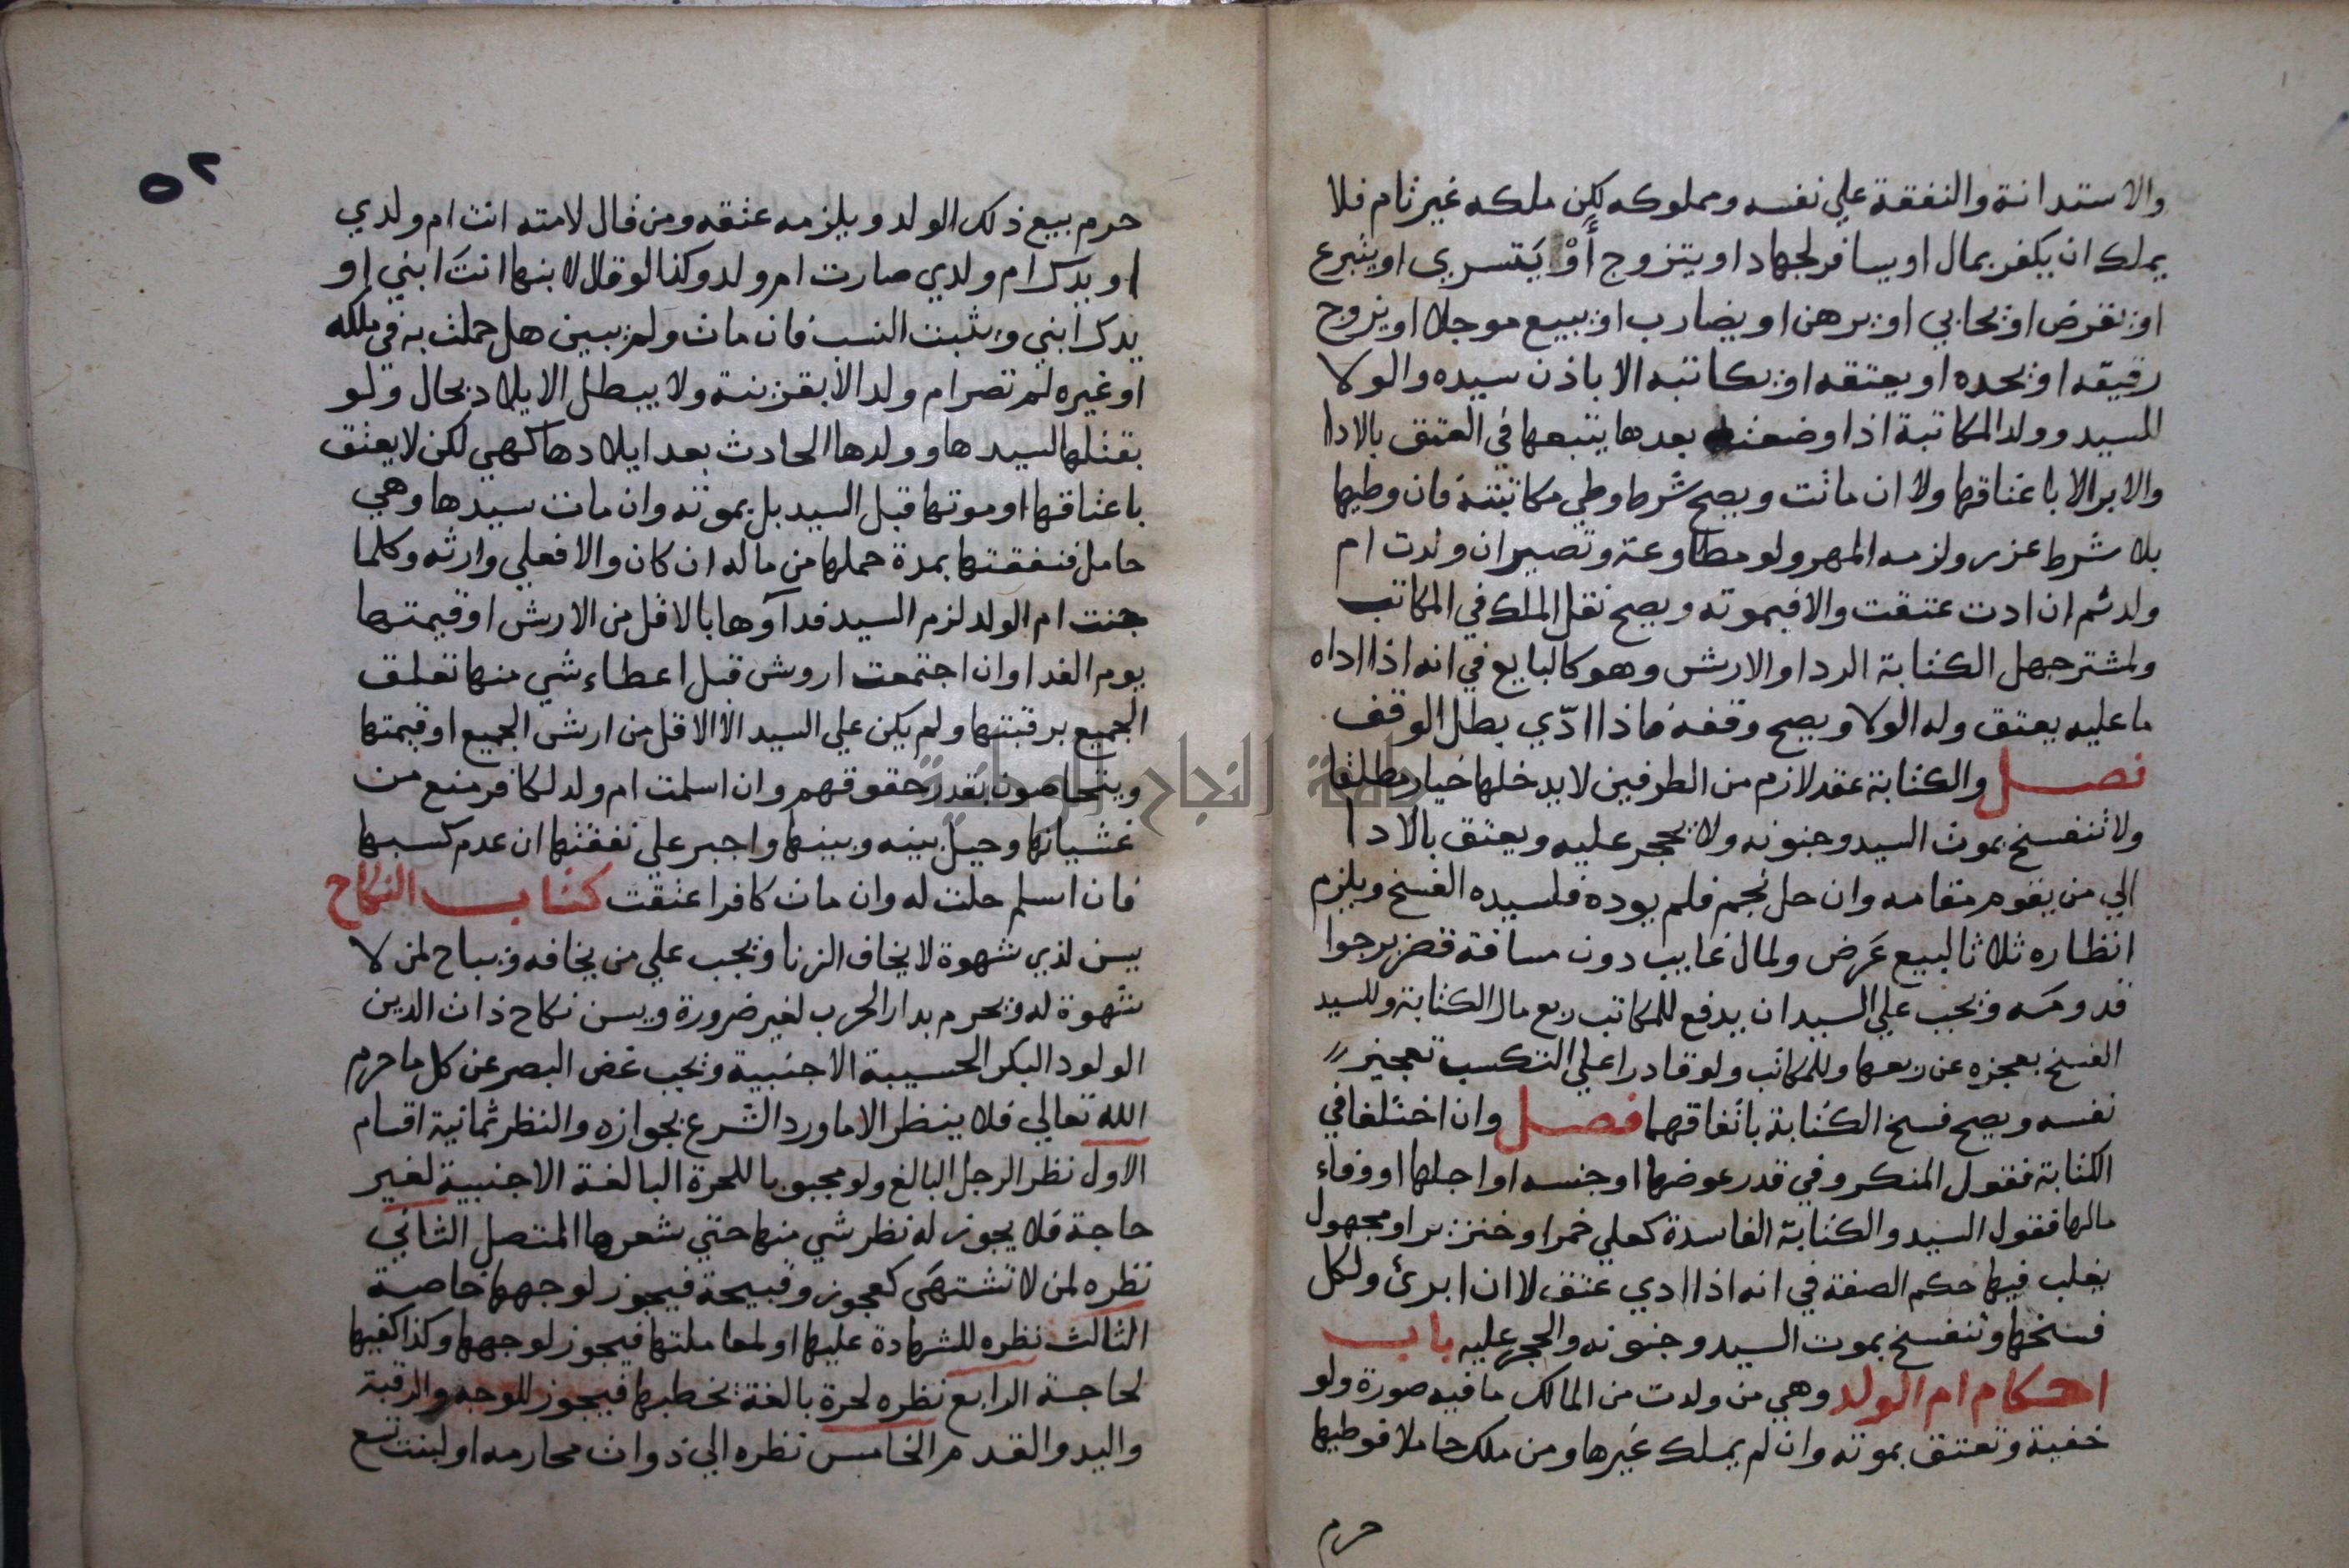 والاستدانة والنفقة علي نفسه ومملوكه لكن ملكه غير تام فلا
يملك ان يكفر بمال او يسافر لجهاد او يتزوج أَوْ يَتسري او يتبرع
او يقرض او يحابي او يرهن او يضارب او يبيع موجلا او يزوج
رقيقه او يحده او يعتقه او يكاتبه الا باذن سيده والولا
للسيد وولد المكاتبة اذا وضعته بعدها يتبعها في العتق بالادا
والابرا لا باعتاقها ولا ان ماتت ويصح شرط وطي مكاتبته فان وطيها
بلا شرط عزر ولزمه المهر ولو مطاوعة وتصير ان ولدت ام
ولد ثم ان ادت عتقت والا فبموته ويصح نقل الملك في المكاتب
ولمشتر جهل الكتابة الرد او الارش وهو كالبايع في انه اذا اداه
ما عليه يعتق وله الولا ويصح وقفه فاذا ادّي بطل الوقف
فصل والكتابة عقد لازم من الطرفين لا يدخلها خيار مطلقا
ولا تنفسخ بموت السيد وجنونه ولا يحجر عليه ويعتق بالادا
الي من يقوم مقامه وان حل نجم فلم يوده فلسيده الفسخ ويلزم
انظاره ثلاثا لبيع عَرض ولمال غايب دون مسافة قصر يرجوا
قدومَه ويجب علي السيد ان يدفع للمكاتب ربع مال الكتابة وللسيد
الفسخ بعجزه عن ربعها وللمكاتب ولو قادرا علي التكسب تعجيز
نفسه ويصح فسخ الكتابة باتفاقهما فصل وان اختلفا في
الكتابة فقول المنكر وفي قدر عوضها او جنسه او اجلها او وفاء
مالها فقول السيد والكتابة الفاسدة كعلي خمر او خنزير او مجهول
يغلب فيها حكم الصفة في انه اذا ادي عتق لا ان ابرئ ولكل
فسخها وتنفسخ بموت السيد وجنونه والحجر عليه باب
احكام ام الولد وهي من ولدت من المالك ما فيه صورة ولو
خفية وتعتق بموته وان لم يملك غيرها ومن ملك حاملا فوطيها
حرم
٥٢
حرم بيع ذلك الولد ويلزمه عتقه ومن قال لامته انت ام ولدي
او يدك ام ولدي صارت ام ولد وكذا لو قال لابنها انتَ ابني او
يدك ابني ويثبت النسب فان مات ولم يبين هل حملت به في ملكه
او غيره لم تصر ام ولد الا بقرينة ولا يبطل الايلاد بحال ولو
بقتلها لسيدها وولدها الحادث بعد ايلادها كهي لكن لا يعتق
باعتاقها او موتها قبل السيد بل بموته وان مات سيدها وهي
حامل فنفقتها بمدة حملها من ماله ان كان والا فعلي وارثه وكلما
جنت ام الولد لزم السيد فداوها بالاقل من الارش او قيمتها
يوم الفدا وان اجتمعت اروش قبل اعطاء شي منها تعلق
الجميع برقبتها ولم يكن علي السيد الا الاقل من ارش الجميع او قيمتها
ويتحاصون بقدر حقوقهم وان اسلمت ام ولد لكافر منع من
غشيانها وحيل بينه وبينها واجبر علي نفقتها ان عدم كسبها
فان اسلم حلت له وان مات كافرا عتقت كتاب النكاح
يسن لذي شهوة لا يخاف الزنا ويجب علي من يخافه ويباح لمن لا
شهوة له ويحرم بدار الحرب لغير ضرورة ويسن نكاح ذات الدين
الولود البكر الحسيبة الاجنبية ويجب غض البصر عن كل ما حرم
الله تعالي فلا ينظر الا ما ورد الشرع بجوازه والنظر ثمانية اقسام
الاول نظر الرجل البالغ ولو مجبوبا للحرة البالغة الاجنبية لغير
حاجة فلا يجوز له نظر شي منها حتي شعرها المتصل الثاني
نظره لمن لا تشتهَى كعجوز وقبيحة فيجوز لوجهها خاصة
الثالث نظره للشهادة عليها او لمعاملتها فيجوز لوجهها وكذا كفيها
لحاجة الرابع نظره لحرة بالغة يخطبها فيجوز للوجه والرقبة
واليد والقدم الخامس نظره الي ذوات محارمه او لبنت تسع
جامعة النجاح الوطنية